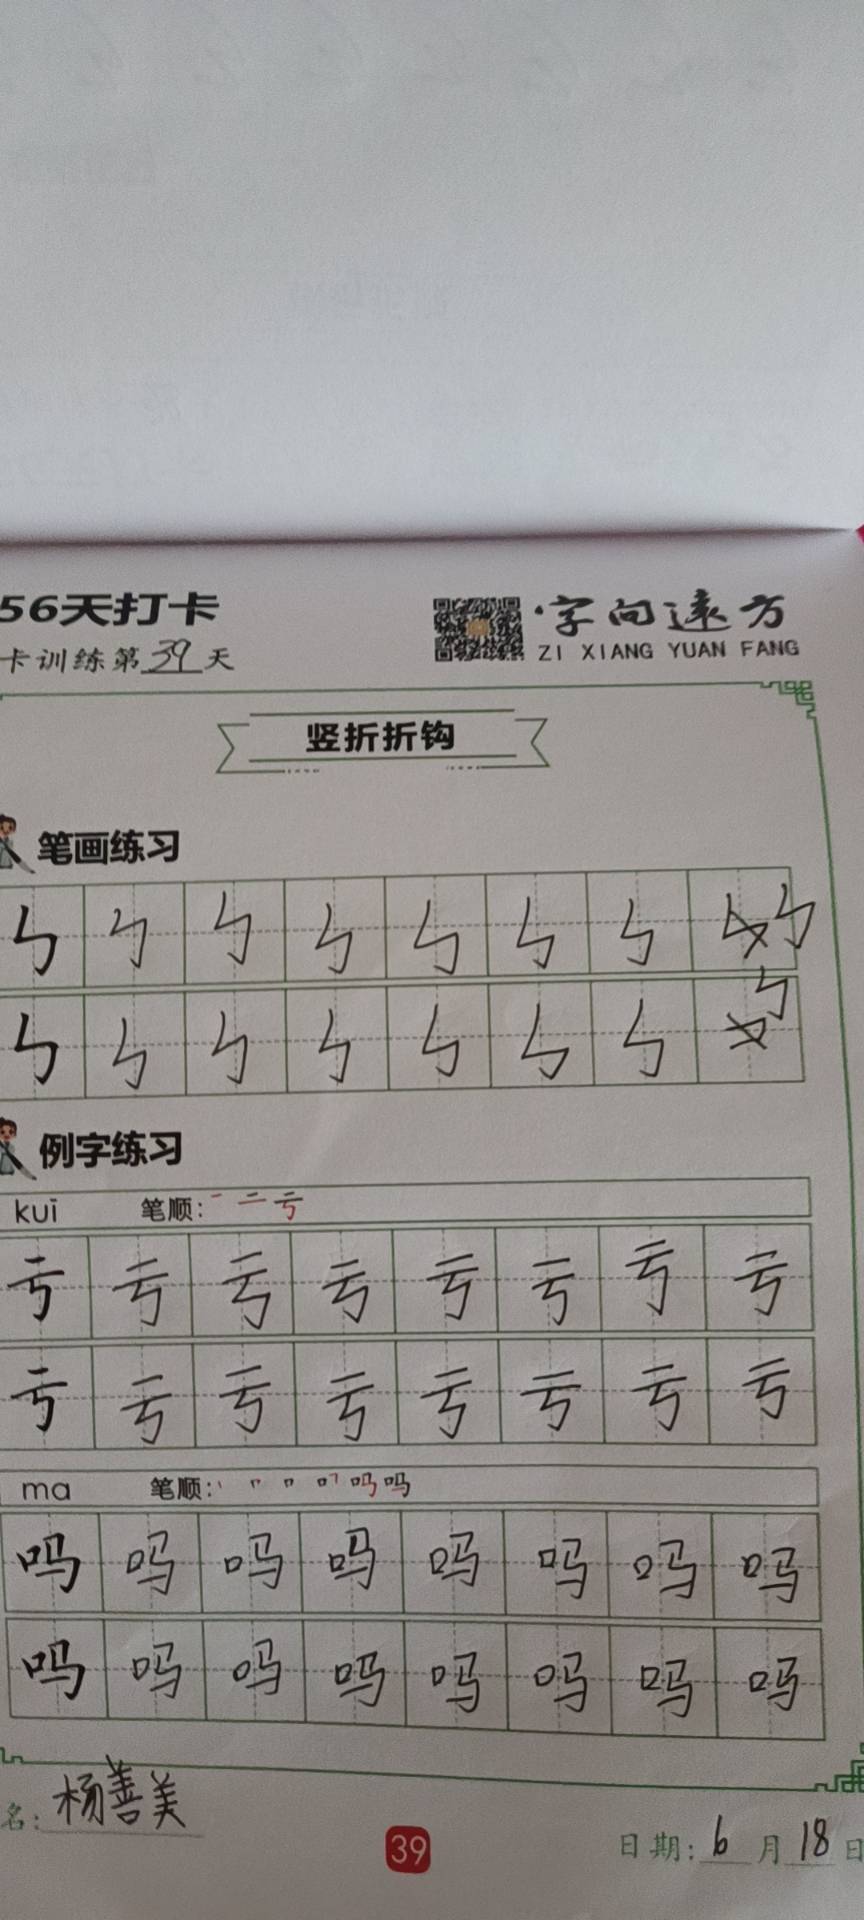 56天打卡
字向远方
卡训练第39天
ZI XIANG YUAN FANG
竖折折钩
笔画练习
ㄣ ㄣ ㄣ ㄣ ㄣ ㄣ ㄣ ㄣ
ㄣ ㄣ ㄣ ㄣ ㄣ ㄣ ㄣ ㄣ
例字练习
kuī 笔顺: 一 二 亏
亏 亏 亏 亏 亏 亏 亏 亏
亏 亏 亏 亏 亏 亏 亏 亏
ma 笔顺: 吗 吗
吗 吗 吗 吗 吗 吗 吗 吗
吗 吗 吗 吗 吗 吗 吗 吗
名: 杨善美
39
日期: 6月18日